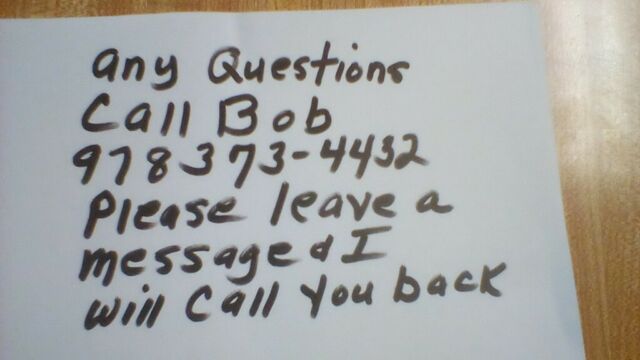 any Questions
Call Bob
978 373-4432
Please leave a
message & I
will Call You back